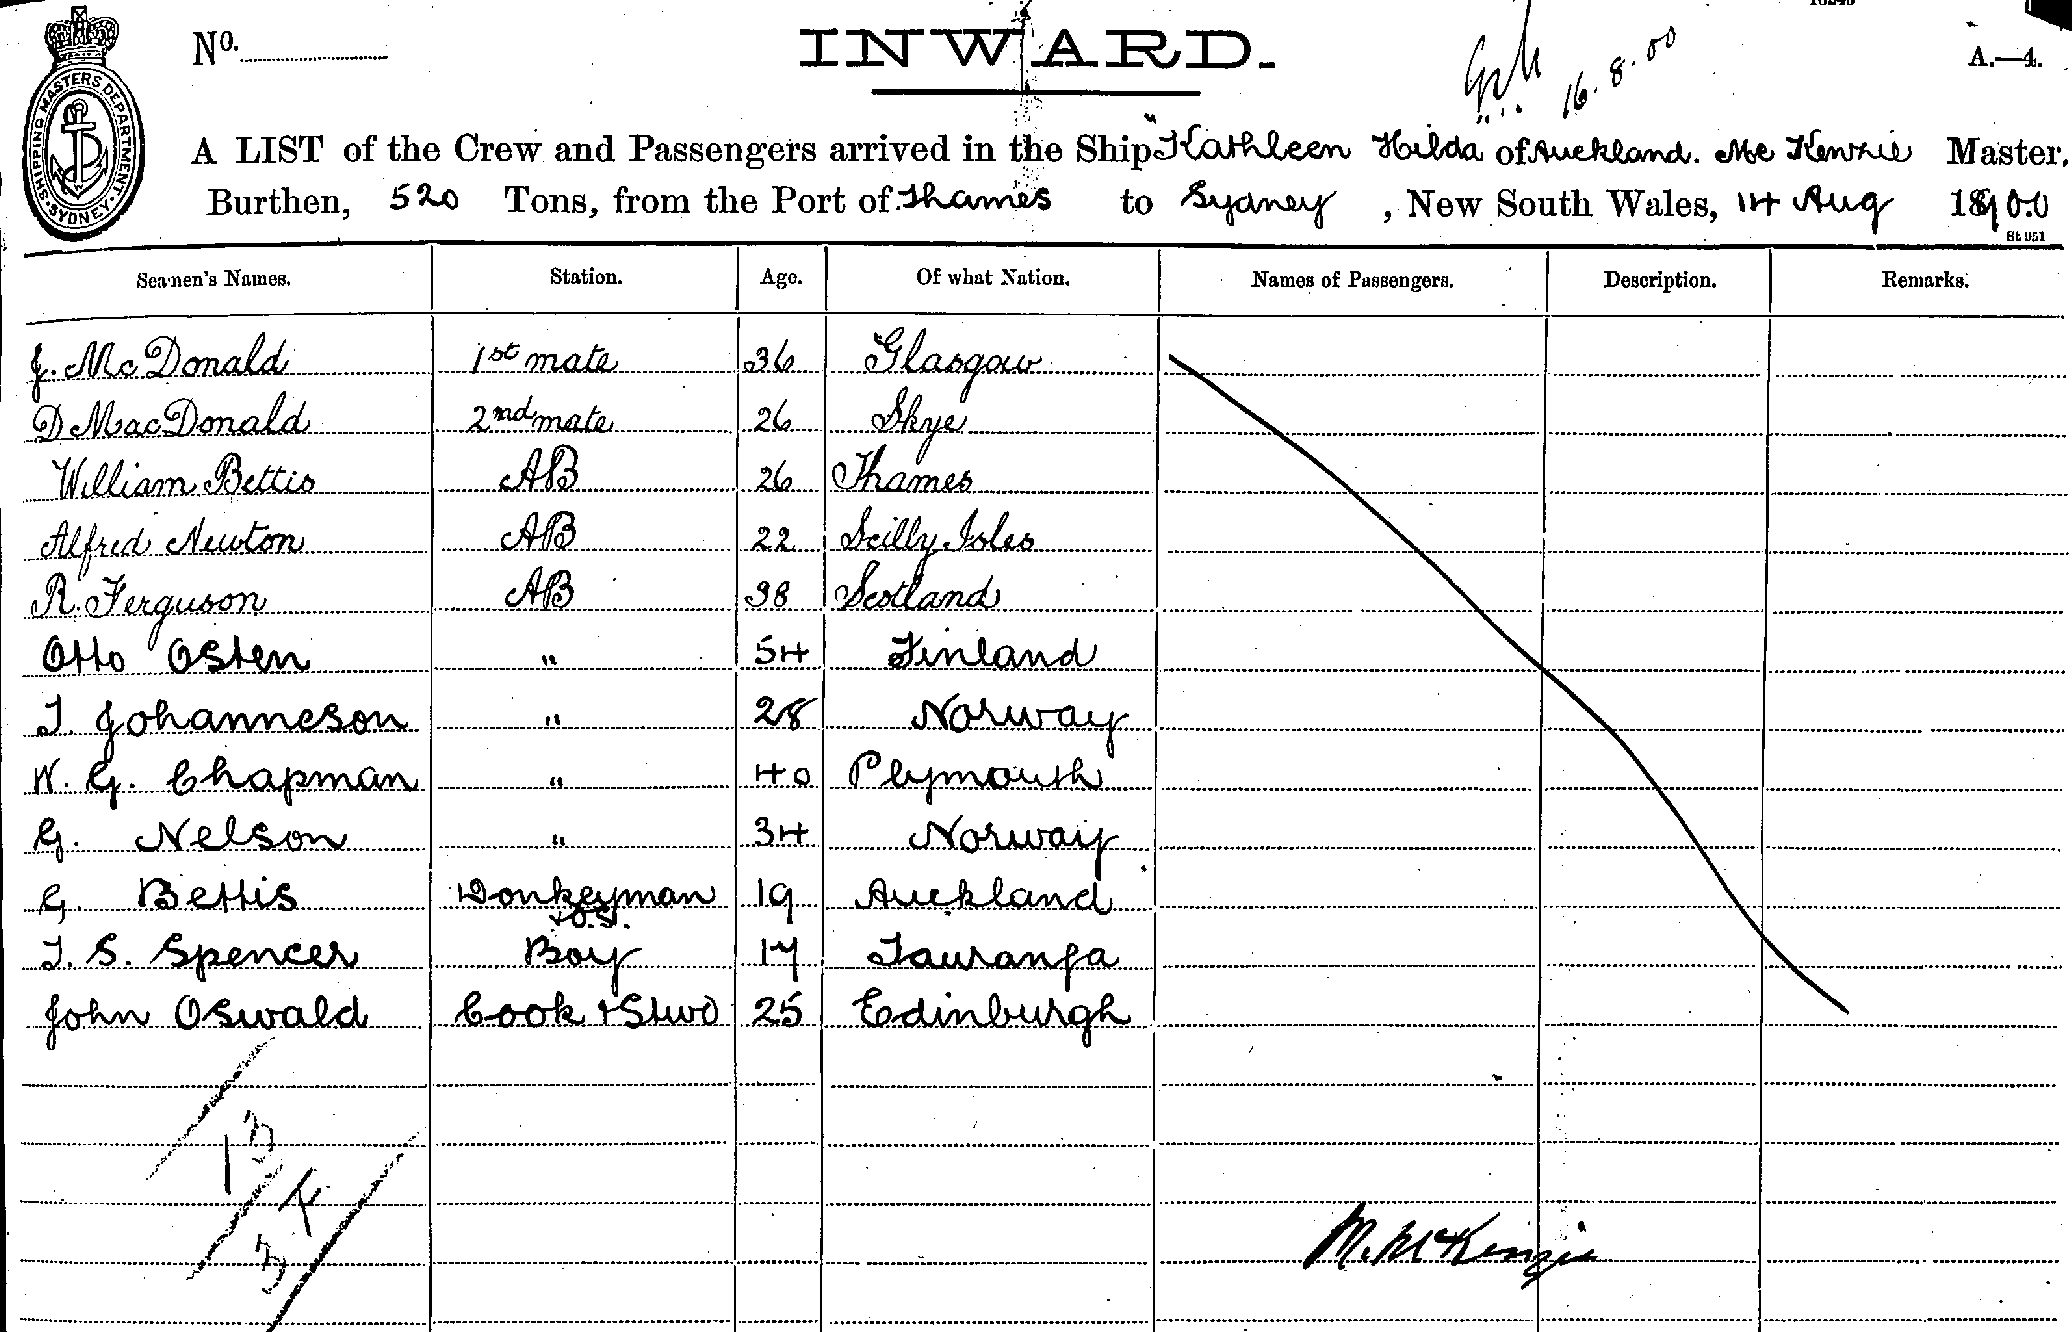 No.
INWARD.
16.8.00
A.—4.
SHIPPING MASTERS DEPARTMENT SYDNEY
A LIST of the Crew and Passengers arrived in the Ship "Kathleen Hilda of Auckland. Mc Kenzie Master,
Burthen, 520 Tons, from the Port of Thames to Sydney, New South Wales, 14 Aug 1900
Seamen's Names. Station. Age. Of what Nation. Names of Passengers. Description. Remarks.
J. McDonald 1st mate 36 Glasgow
D MacDonald 2nd mate 26 Skye
William Bettis AB 26 Thames
Alfred Newton AB 22 Scilly Isles
R. Ferguson AB 38 Scotland
Otto Osten " 54 Finland
J. Johanneson " 28 Norway
W. G. Chapman " 40 Plymouth
G. Nelson " 34 Norway
G. Bettis Donkeyman 19 Auckland
+O.S.
J. S. Spencer Boy 17 Tauranga
John Oswald Cook + Stwd 25 Edinburgh
13
M. McKenzie